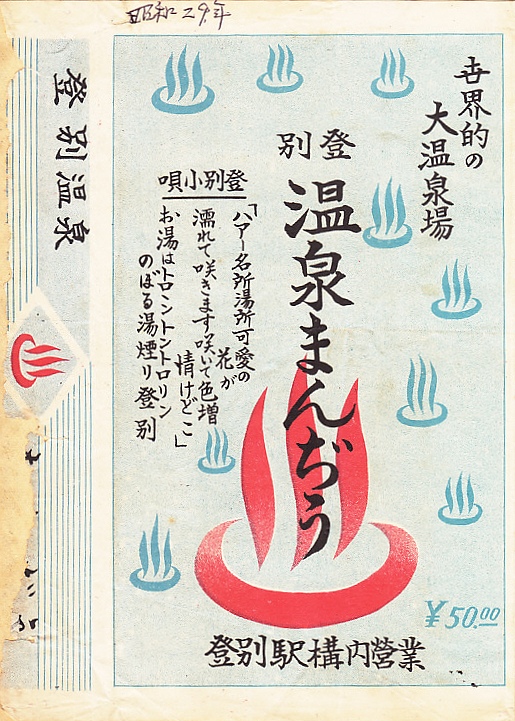 昭和29.年
世界的の
大温泉場
登別
温泉まんぢう
登別小唄
「ハアー名所湯所可愛の
花が
濡れて咲きます咲いて色増
情けどこ」
お湯はトロントントロリン
のぼる湯煙り登別
¥50.00
登別駅構内営業
登別温泉